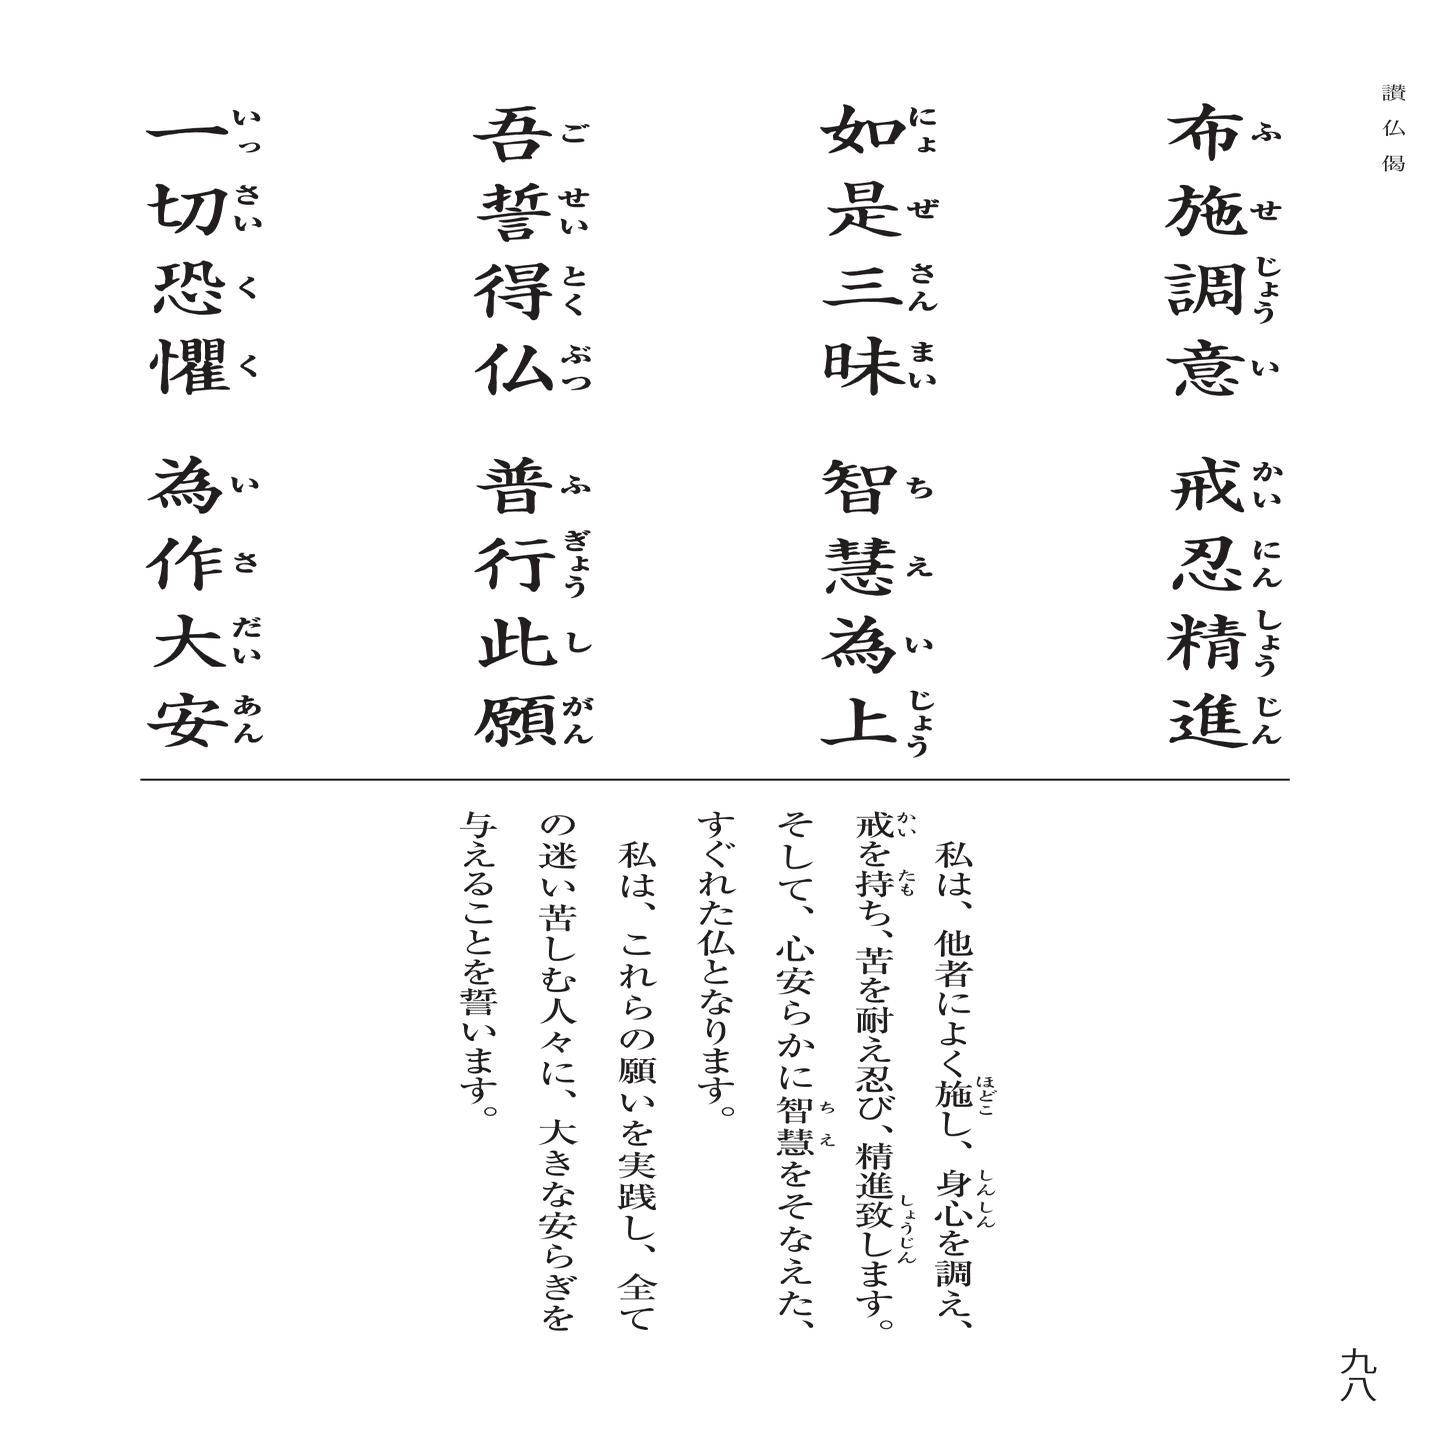 讃仏偈
布施調意 戒忍精進
ふせじょうい かいにんしょうじん
如是三昧 智慧為上
にょぜさんまい ちえいじょう
吾誓得仏 普行此願
ごせいとくぶつ ふぎょうしがん
一切恐懼 為作大安
いっさいくく いさだいあん
私は、他者によく施し、身心を調え、
ほどこ しんしん
戒を持ち、苦を耐え忍び、精進致します。
かい たも しょうじん
そして、心安らかに智慧をそなえた、
ちえ
すぐれた仏となります。
私は、これらの願いを実践し、全て
の迷い苦しむ人々に、大きな安らぎを
与えることを誓います。
九八